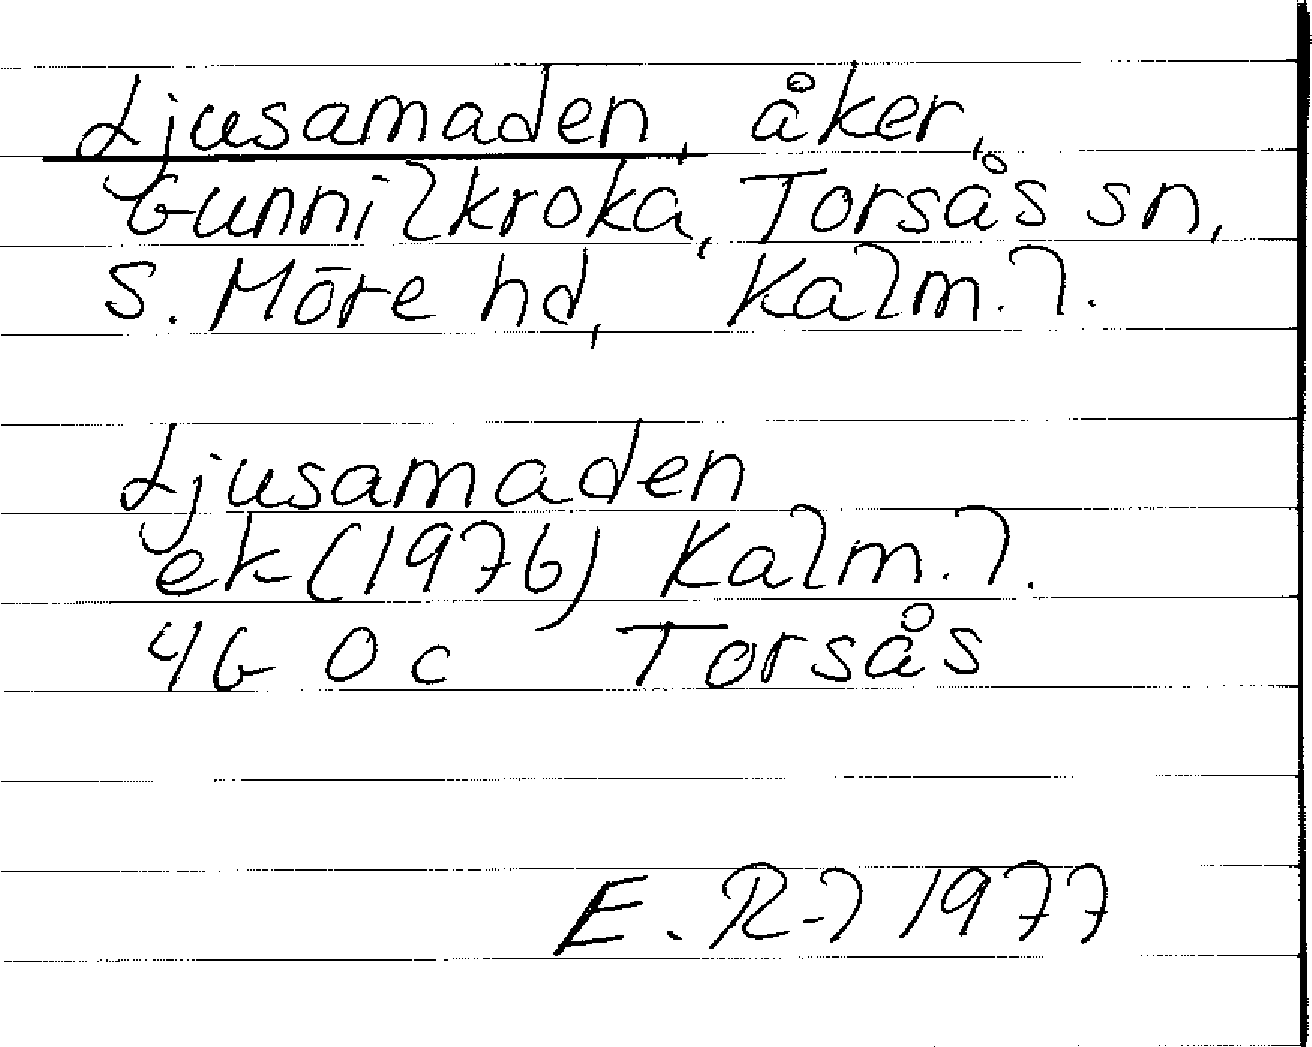 Ljusamaden, åker,
Gunnilkroka, Torsås sn,
S. Möre hd, Kalm. l.
Ljusamaden
ek (1976) Kalm. l.
4G 0c Torsås
E. R-l 1977